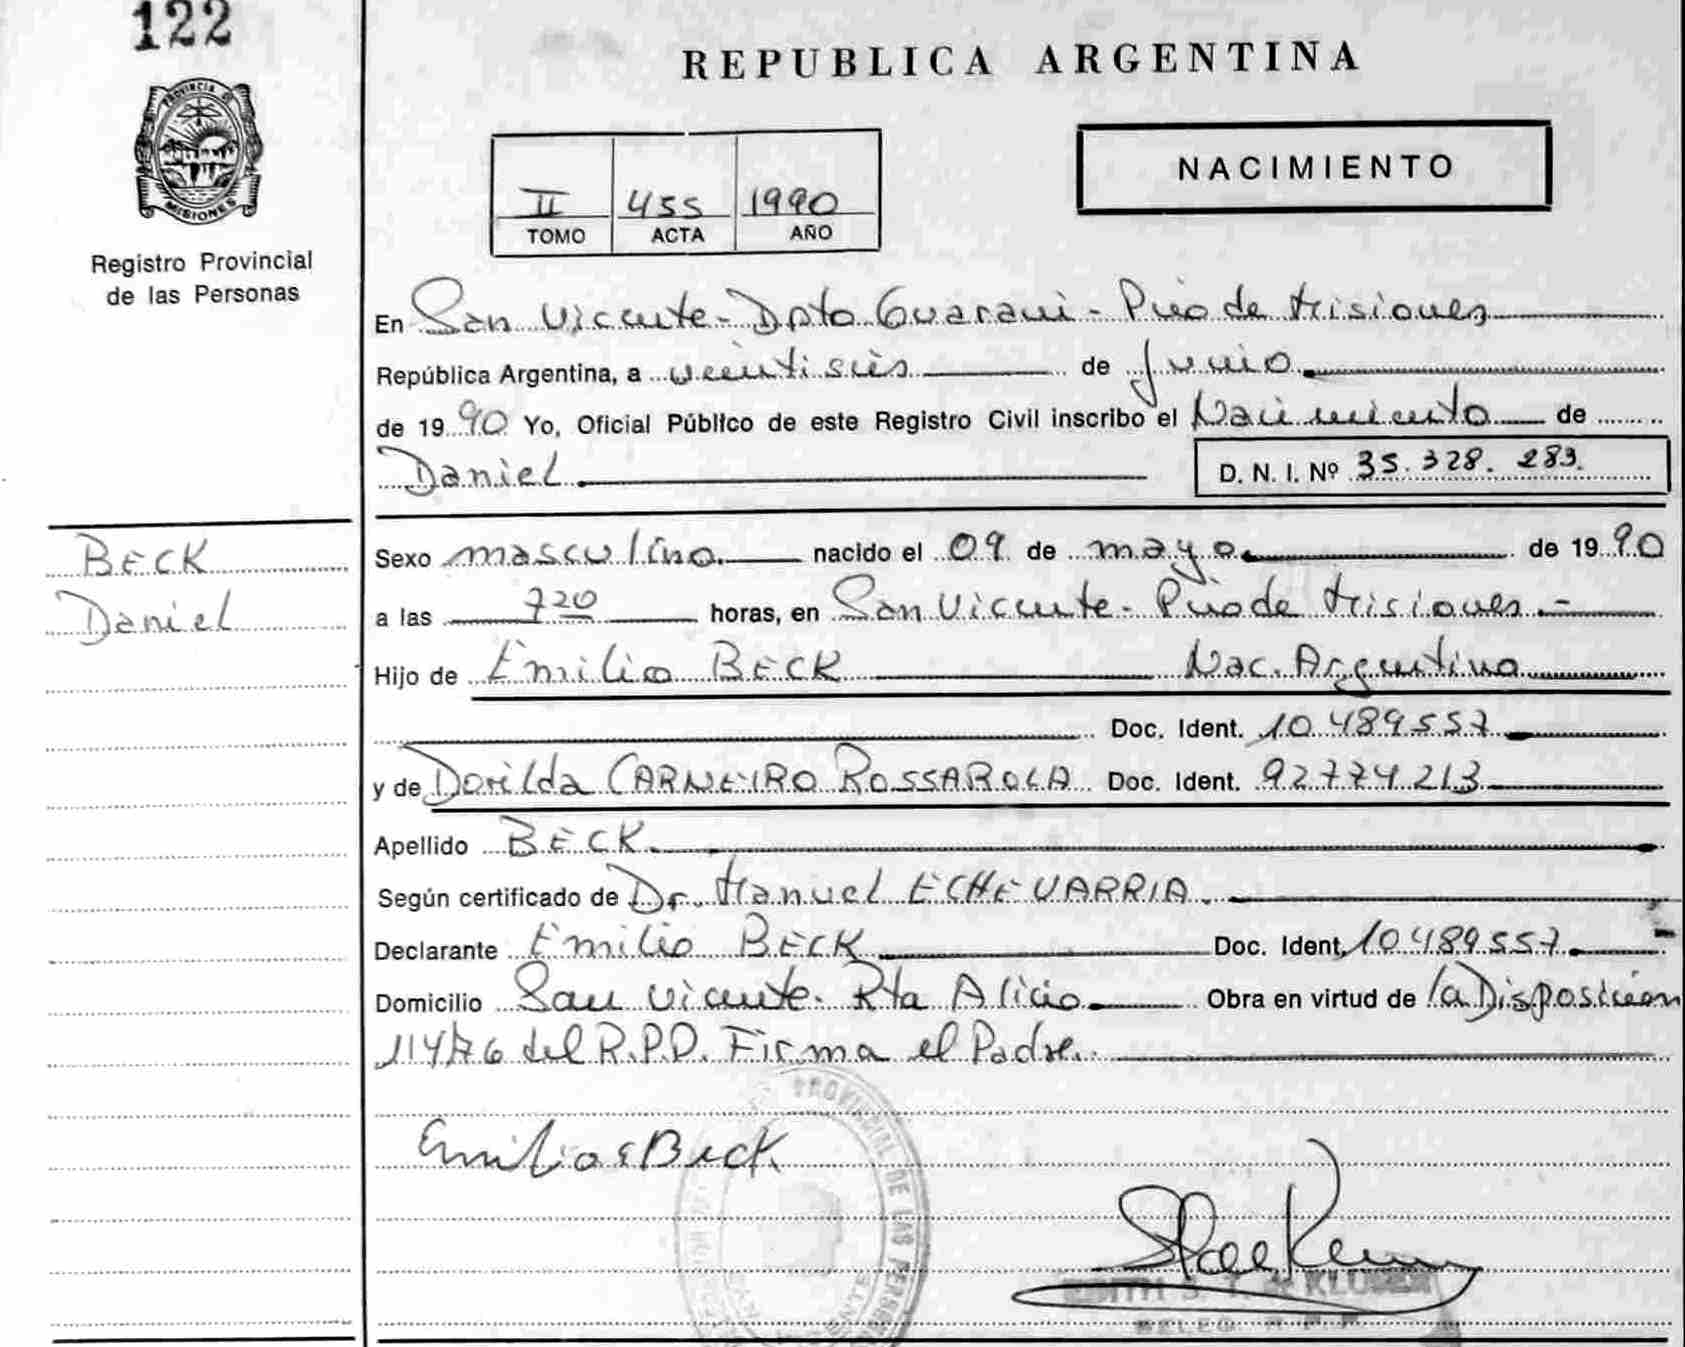 122
REPUBLICA ARGENTINA
PROVINCIA DE
MISIONES
Registro Provincial
de las Personas
II 455 1990
TOMO ACTA AÑO
NACIMIENTO
En San Vicente - Dpto Guarani - Pcio de Misiones
República Argentina, a veintiseis de Junio
de 1990 Yo, Oficial Público de este Registro Civil inscribo el Nacimiento de
Daniel D. N. I. Nº 35.328.283.
BECK
Daniel
Sexo masculino. nacido el 09 de mayo. de 1990
a las 720 horas, en San Vicente - Pcio de Misiones. -
Hijo de Emilio BECK Nac. Argentino
Doc. Ident. 10.489.557
y de Dorilda CARNEIRO ROSSAROLA Doc. Ident. 92.774.213
Apellido BECK.
Según certificado de Dr. Manuel ECHEVARRIA.
Declarante Emilio BECK Doc. Ident. 10.489.557.
Domicilio San Vicente - Rta Alicio. Obra en virtud de la Disposición
114/76 del R.P.P. Firma el Padre.
Emilio Beck
PROVINCIAL DE LAS PERSO
SAN VICENTE